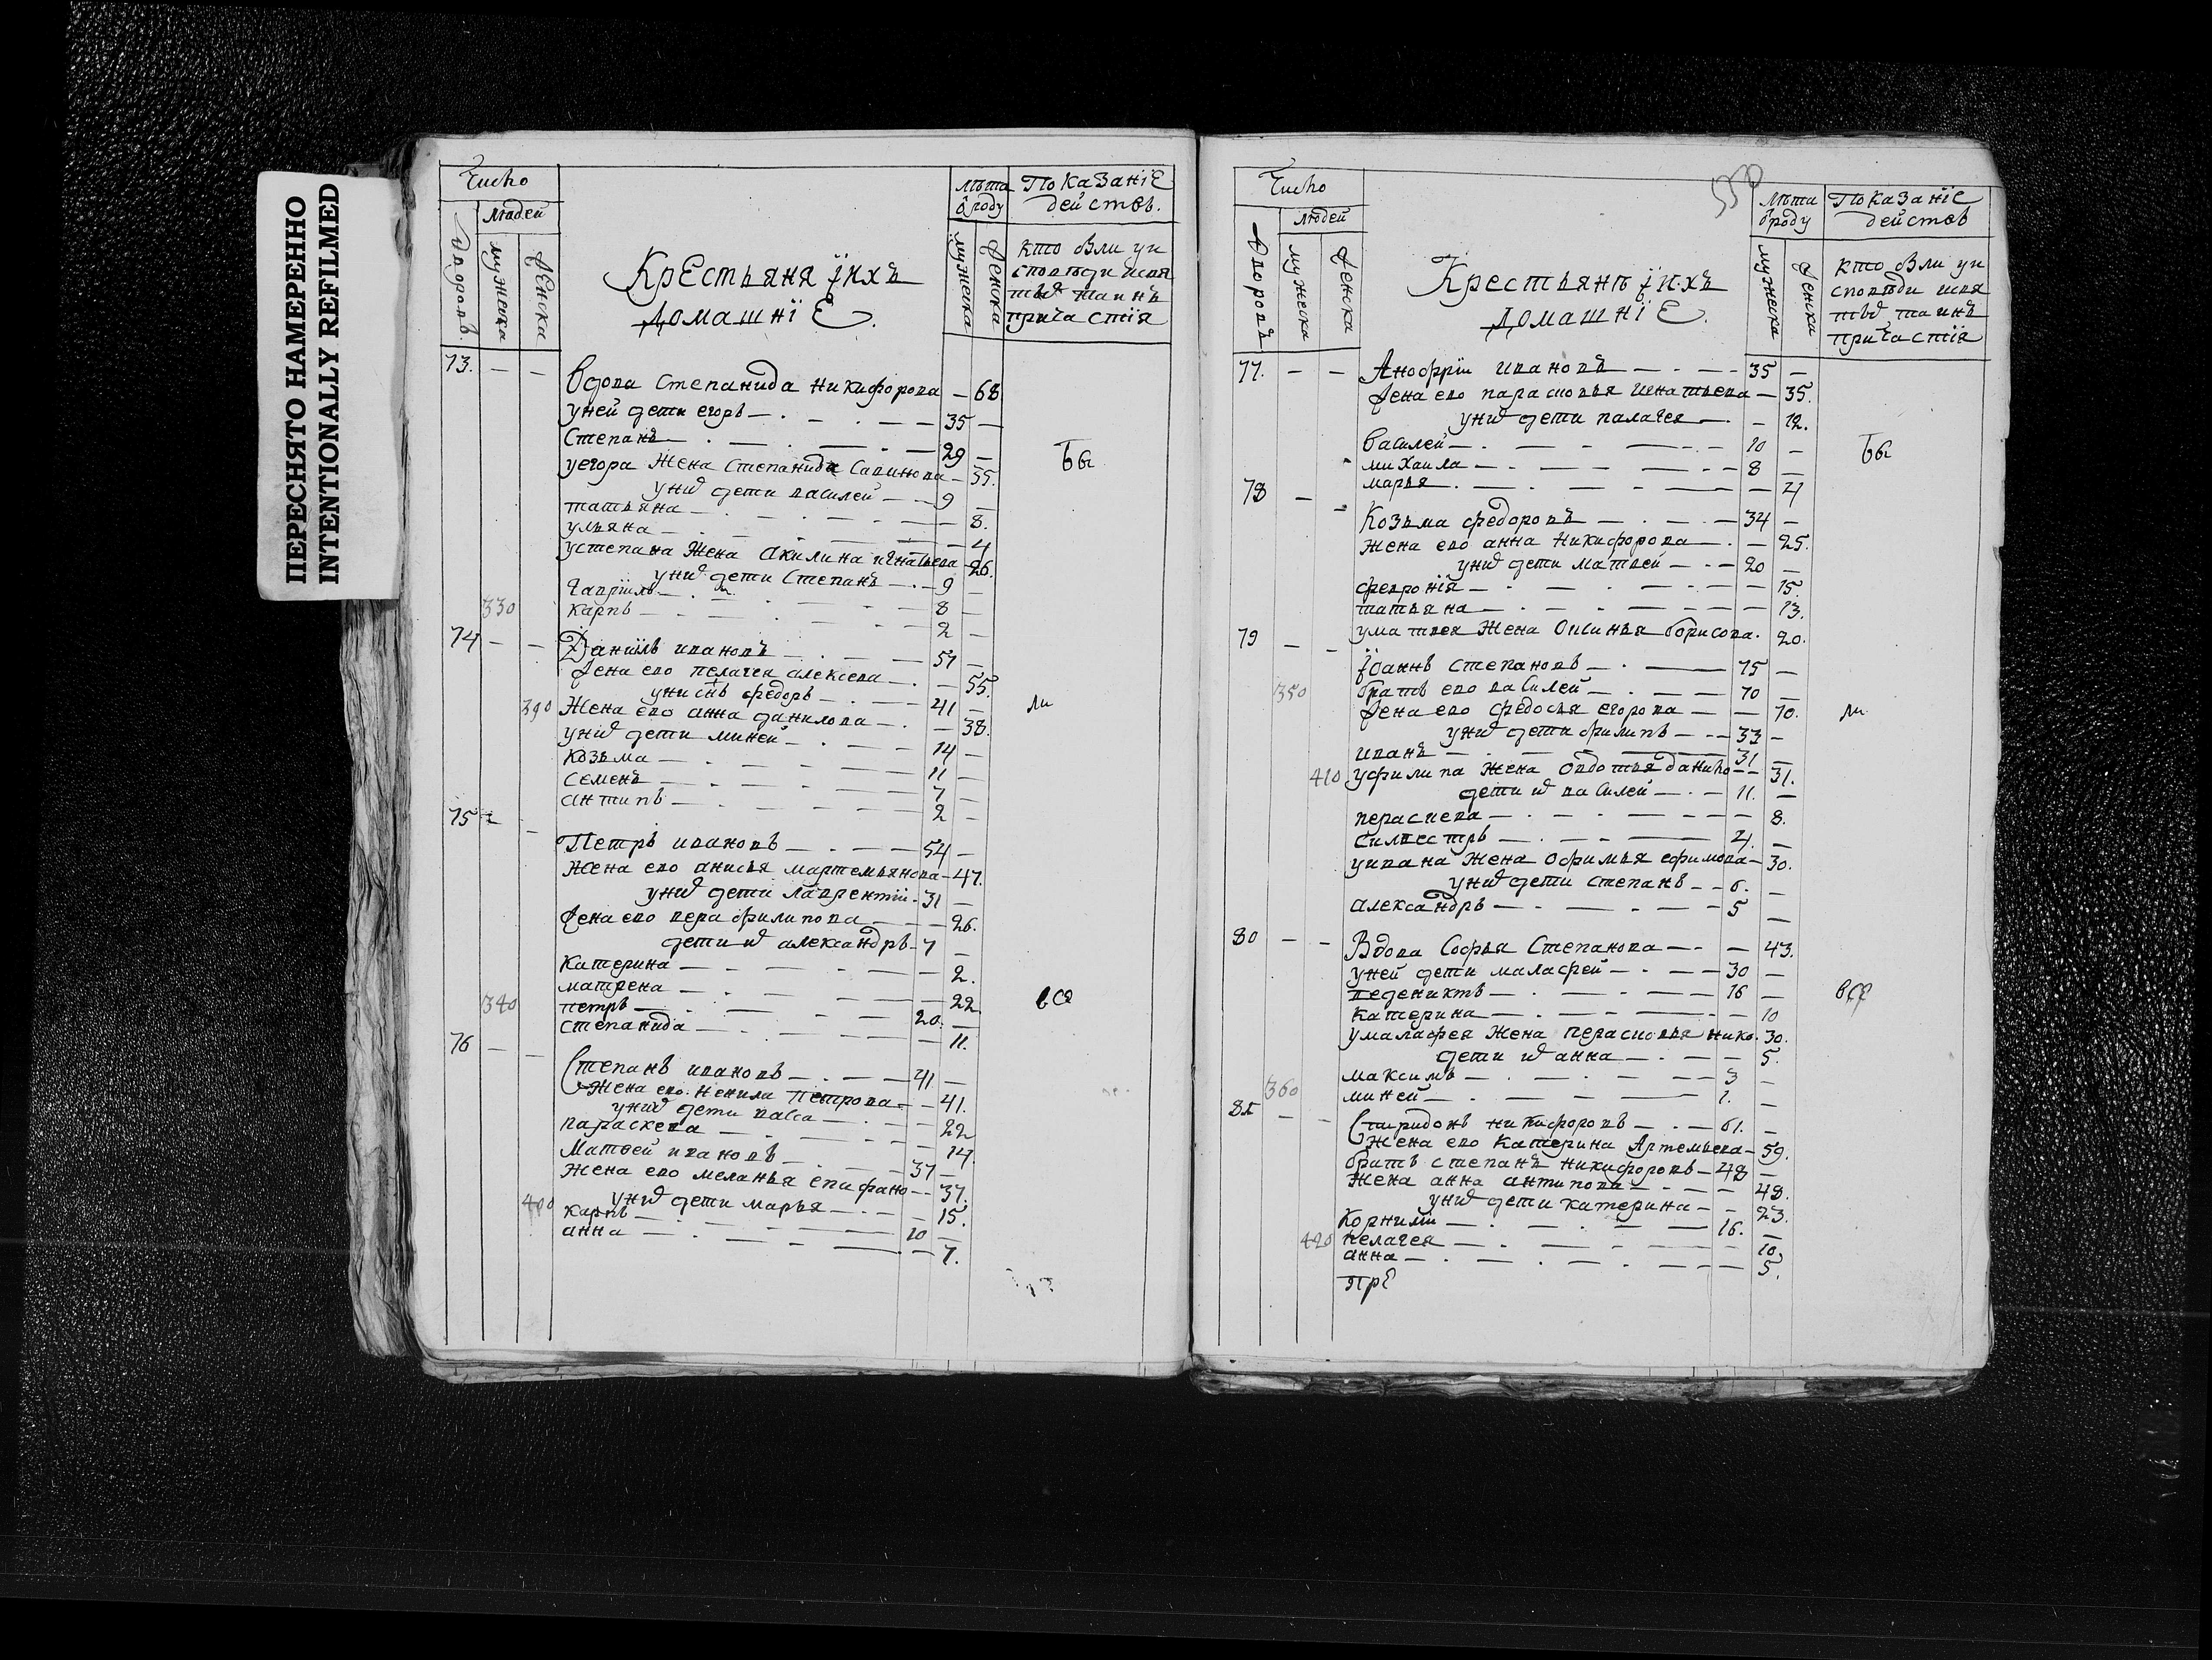 ПЕРЕСНЯТО НАМЕРЕННО
INTENTIONALLY REFILMED
Число
людей
Дворовъ.
мужеска
женска
Крестьяня їихъ
домашнїе.
лѣта
ѿроду
мужеска
женска
Показанїе
действ.
кто былъ уи
споведи исвя
тыхъ таинъ
причастїя
73. — — Вдова Степанида Никифорова — 68
уней дети егоръ — 35 —
Степанъ — 29 —
уегора жена Степанида Савинова — 35.
унихъ дети василей — 9 —
татьяна — 8.
ульяна — 4
устепана жена Акилина игнатьева 26.
унихъ дети Степанъ — 9 —
Гаврїилъ — 8 —
330 карпъ — 2 —
Бы
74 — — Данїилъ ивановъ — 57 —
жена ево пелагея алексева — 55.
унихъ сн҃ъ федоръ — 41 —
390 Жена ево анна данилова — 38.
унихъ дети миней — 14 —
козьма — 11 —
семенъ — 7 —
антипъ — 2 —
ли
75 — — Петръ ивановъ — 54 —
Жена ево анисья мартемьянова — 47.
унихъ дети лаврентїи — 31 —
жена ево вера филипова — 26.
дети их александръ — 7 —
катерина — 2.
матрена — 22
340 петръ — 20. —
степанида — 11.
вся
76 — — Степанъ ивановъ — 41 —
Жена ево ненила Петрова — 41.
унихъ дети васса — 22
параскева — 14.
Матвей ивановъ — 37 —
Жена ево меланья епифано — 37.
унихъ дети марья — 15.
400 карпъ — 10 —
анна — 7.
550
Число
людей
Дворовъ
мужеска
женска
Крестьянъ їихъ
домашнїе.
лѣта
ѿроду
мужеска
женска
Показанїе
действ
кто былъ уи
споведи исвя
тыхъ таинъ
причастїя
77. — — Анофрїи ивановъ — 35 —
жена ево парасковья Игнатьева — 35.
унихъ дети палагея — 12.
василей — 10 —
михаила — 8 —
марья — 4
Бы
78 — — Козьма федоровъ — 34 —
жена ево анна Никифорова — 25.
унихъ дети матвей — 20 —
феврoнїя — 15.
татьяна — 13.
уматвея жена Оксинья борисова. 20.
79 — — їоаннъ степановъ — 75 —
350 братъ ево василей — 70 —
жена ево федосья егорова — 70.
унихъ дети филипъ — 33 —
иванъ — 31 —
410 уфилипа жена Овдотья данило — 31.
дети их василей — 11. —
параскева — 8.
силвестръ — 4. —
уивана жена офимья ефимова — 30.
унихъ дети степанъ — 6. —
александръ — 5 —
ли
80 — — Вдова Софья Степанова — 43.
уней дети маласфей — 30 —
веденихтъ — 16 —
катерина — 10
умаласфея жена перасковья нико. 30.
дети их анна — 5.
максимъ — 3 —
360 миней — 1. —
вся
81 — — Спиридонъ никифоровъ — 61. —
жена ево катерина Артемьева — 59.
братъ степанъ никифоровъ — 48 —
жена анна антипова — 48.
унихъ дети катерина — 23.
корнилїи — 16. —
420 пелагея — 10.
анна — 5.
пре